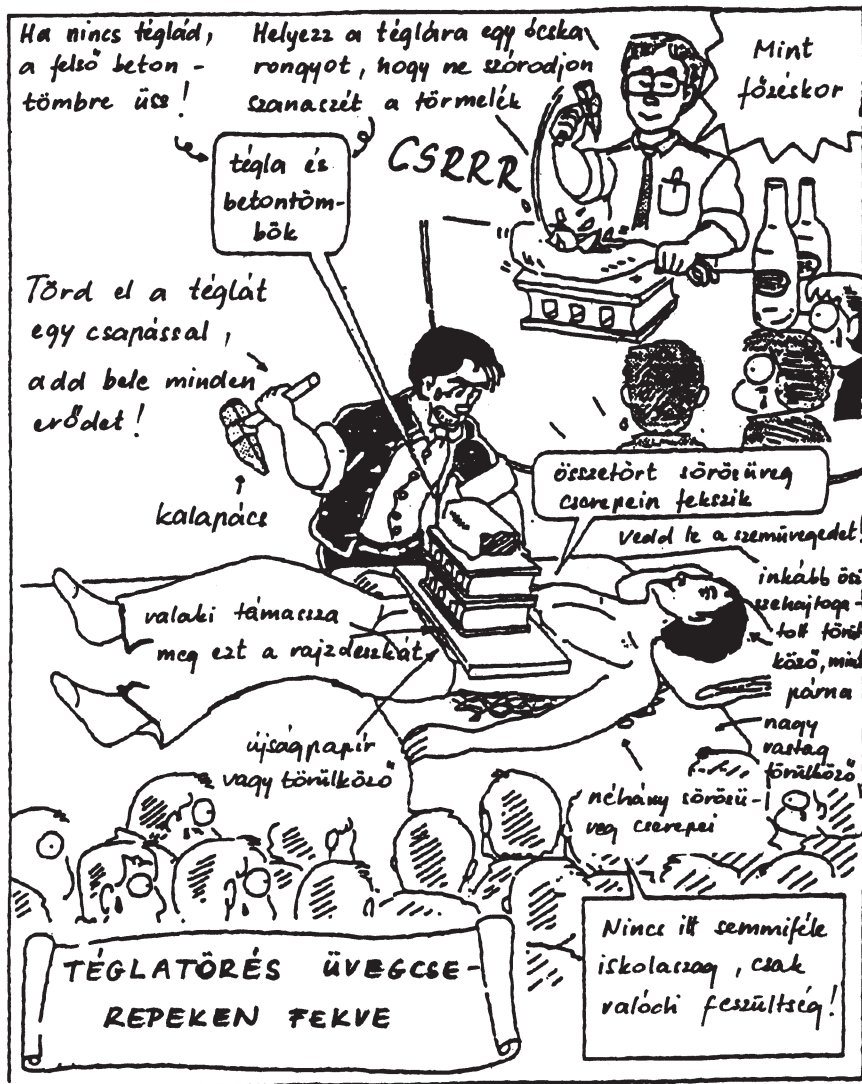 Ha nincs téglád,
a felső beton -
tömbre üss!
Helyezz a téglára egy ócska
rongyot, hogy ne szóródjon
szanaszét a törmelék
Mint
főzéskor
CSRRR
tégla és
betontöm-
bök
Törd el a téglát
egy csapással,
add bele minden
erődet!
kalapács
összetört sörösüveg
cserepein fekszik
vedd le a szemüvegedet!
inkább ösz
szehajtoga-
tott töröl
köző, mint
párna
valaki támassza
meg ezt a rajzdeszkát
nagy
vastag
törülköző
újságpapír
vagy törülköző
néhány sörösü-
veg cserepei
Nincs itt semmiféle
iskolaszag, csak
valódi feszültség!
TÉGLATÖRÉS ÜVEGCSE-
REPEKEN FEKVE